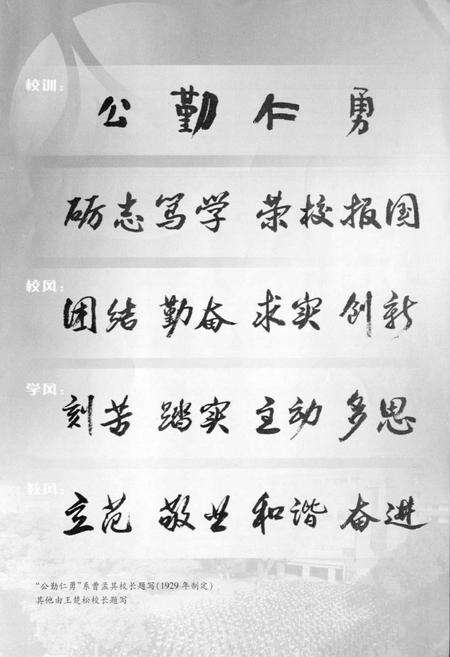 校训：
公 勤 仁 勇
砺志 笃学 荣校 报国
校风：
团结 勤奋 求实 创新
学风：
刻苦 踏实 主动 多思
教风：
立范 敬业 和谐 奋进
“公勤仁勇”系曹孟其校长题写(1929年制定)
其他由王楚松校长题写